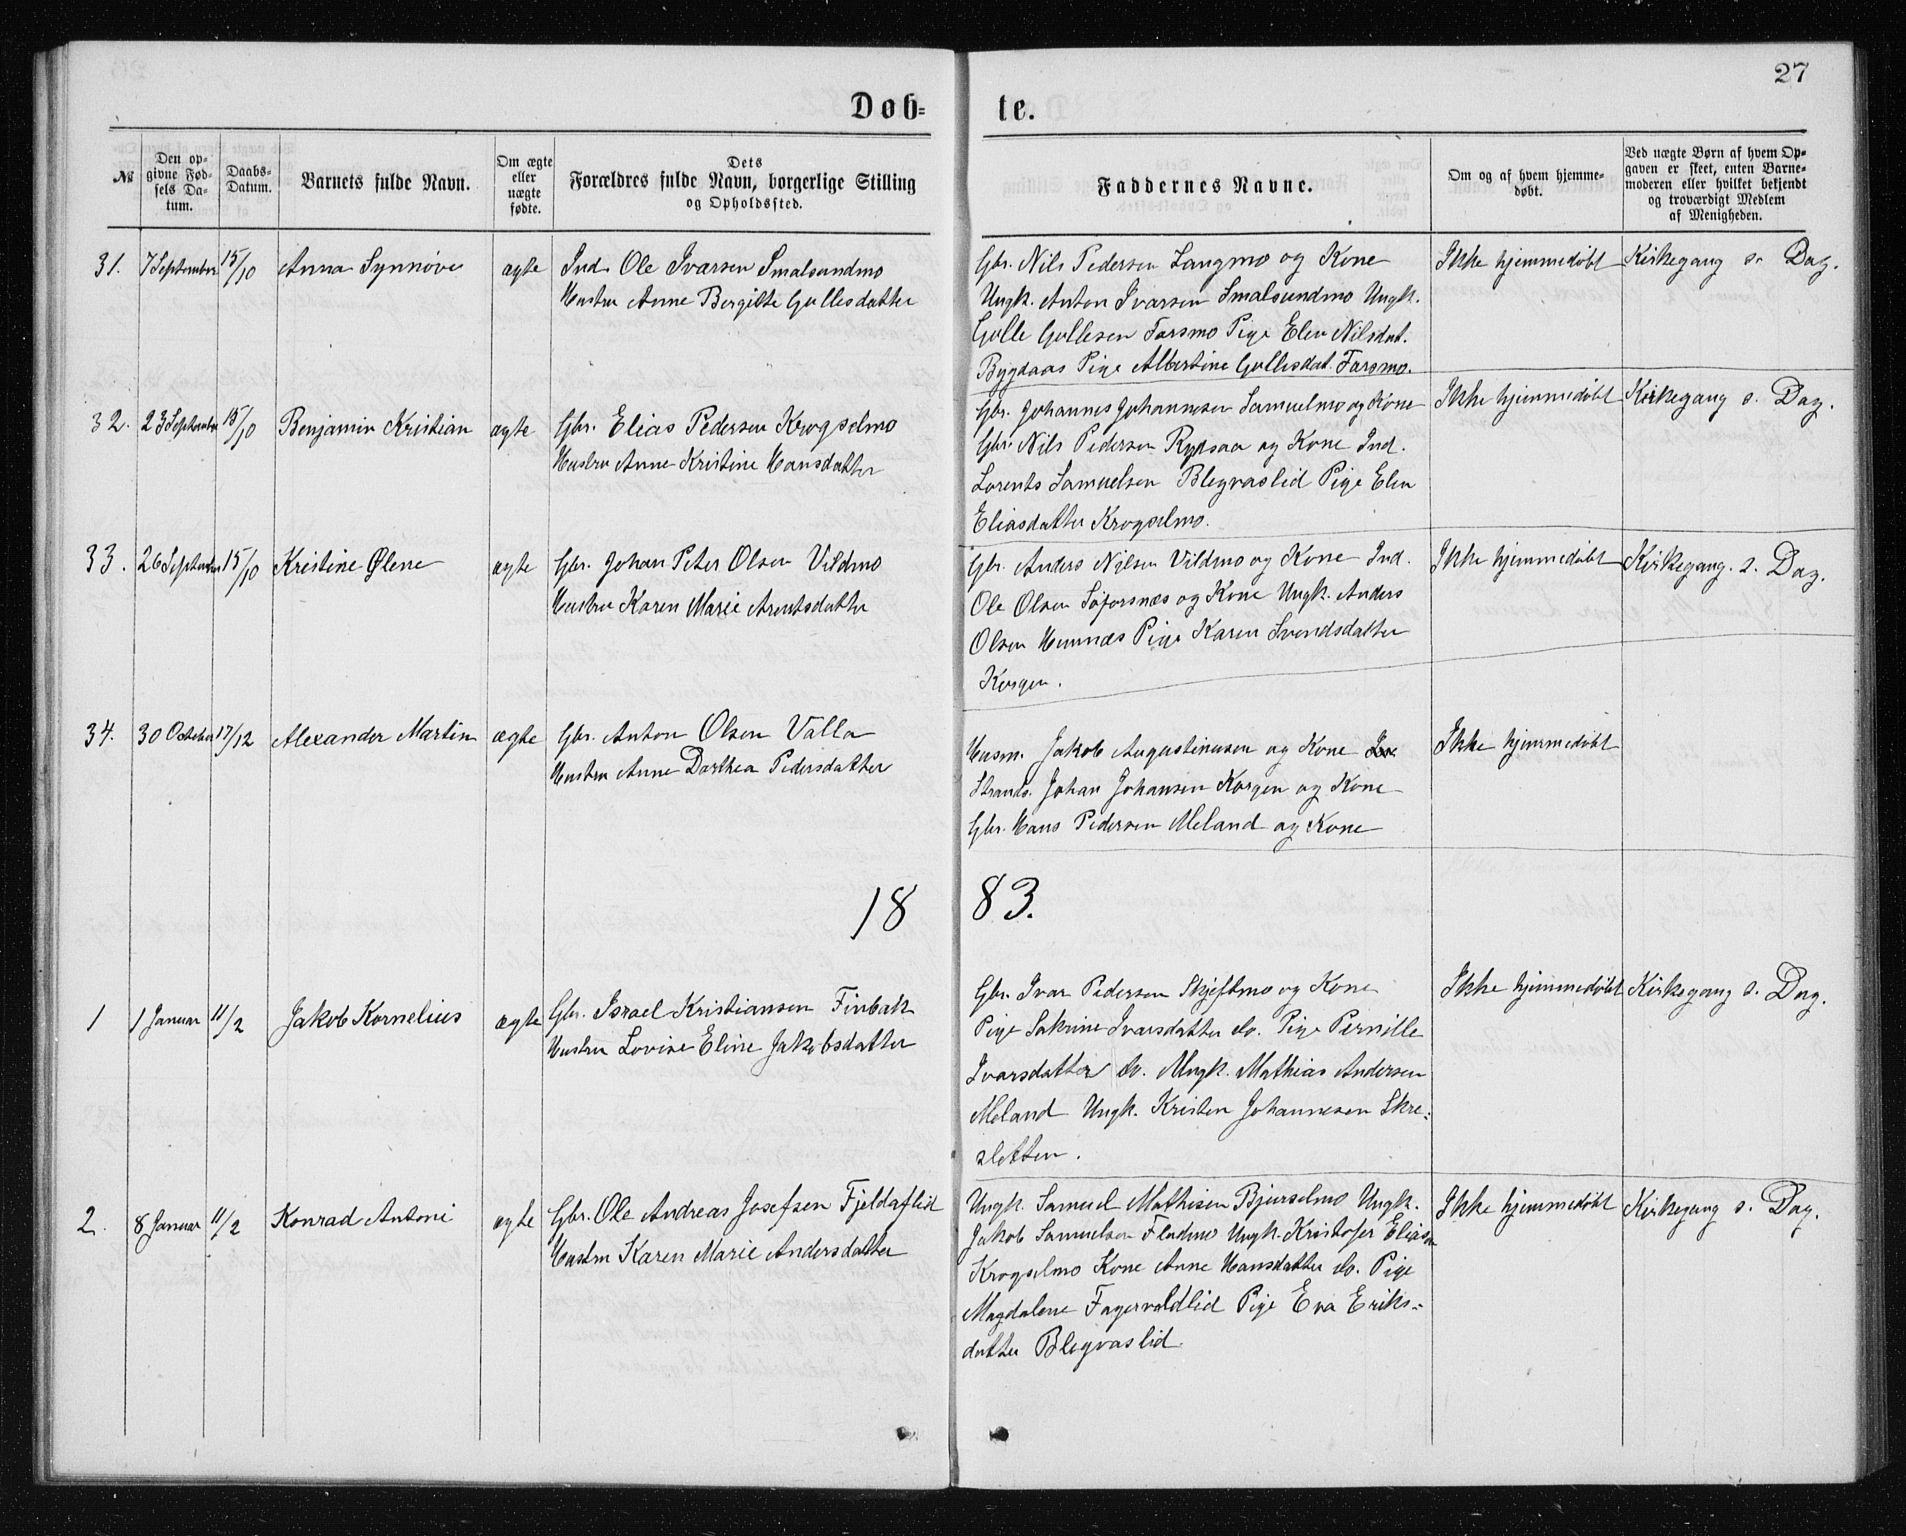 27
Døb=
te.
№
Den op-
givne Fød-
sels Da-
tum.
Daabs-
Datum.
Barnets fulde Navn.
Om ægte
eller
uægte
fødte.
Dets
Forældres fulde Navn, borgerlige Stilling
og Opholdssted.
Faddernes Navne.
Om og af hvem hjemme-
døbt.
Ved uægte Børn af hvem Op-
gaven er skeet, enten Barne-
moderen eller hvilket bekjendt
og troværdigt Medlem
af Menigheden.
31. 7 September 15/10 Anna Synnøve ægte Ind. Ole Ivarsen Smalsundmo
Hustru Anne Bergitte Gullesdatter
Gbr. Nils Pedersen Langmo og Kone
Ungk. Anton Ivarsen Smalsundmo Ungk.
Gulle Gullesen Farsmo Pige Elen Nilsdat.
Bygdaas Pige Albertine Gullesdat. Farsmo.
Ikke hjemmedøbt Kirkegang s. Dag.
32. 23 September 15/10 Benjamin Kristian ægte Gbr. Elias Pedersen Krogselmo
Hustru Anne Kristine Hansdatter
Gbr. Johannes Johannesen Samuelmo og Kone
Gbr. Nils Pedersen Rynsaa og Kone Ind.
Lorents Samuelsen Blegvaslid Pige Elen
Eliasdatter Krogselmo.
Ikke hjemmedøbt Kirkegang s. Dag.
33. 26 September 15/10 Kristine Ølene ægte Gbr. Johan Peter Olsen Vildmo
Hustru Karen Marie Arentsdatter
Gbr. Anders Nilsen Vildmo og Kone Ind.
Ole Olsen Søforsnæs og Kone Ungk. Anders
Olsen Hemnæs Pige Karen Svendsdatter
Korgen.
Ikke hjemmedøbt Kirkegang. s. Dag.
34. 30 October 17/12 Alexander Martin ægte Gbr. Anton Olsen Valla
Hustru Anne Dorthea Pedersdatter
Husm. Jakob Augustinusen og Kone
Strands. Johan Johansen Korgen og Kone
Gbr. Hans Pedersen Meland og Kone
Ikke hjemmedøbt
18 83.
1 1 Januar 11/2 Jakob Kornelius ægte Gbr. Israel Kristiansen Finbak
Hustru Lovise Eline Jakobsdatter
Gbr. Ivar Pedersen Skjeftmo og Kone
Pige Sakrine Ivarsdatter do. Pige Pernille
Ivarsdatter do. Ungk. Mathias Andersen
Meland Ungk. Kristen Johannesen Skre-
sletten.
Ikke hjemmedøbt Kirkegang s. Dag.
2. 8 Januar 11/2 Konrad Antoni ægte Gbr. Ole Andreas Josefsen Fjeldaflid
Hustru Karen Marie Andersdatter
Ungk. Samuel Mathisen Bjurselmo Ungk.
Jakob Samuelsen Fladmo Ungk. Kristofer Eliasen
Krogselmo Kone Anne Hansdatter do. Pige
Magdalene Fagervoldlid Pige Eva Eriks-
datter Blegvaslid
Ikke hjemmedøbt Kirkegang s. Dag.